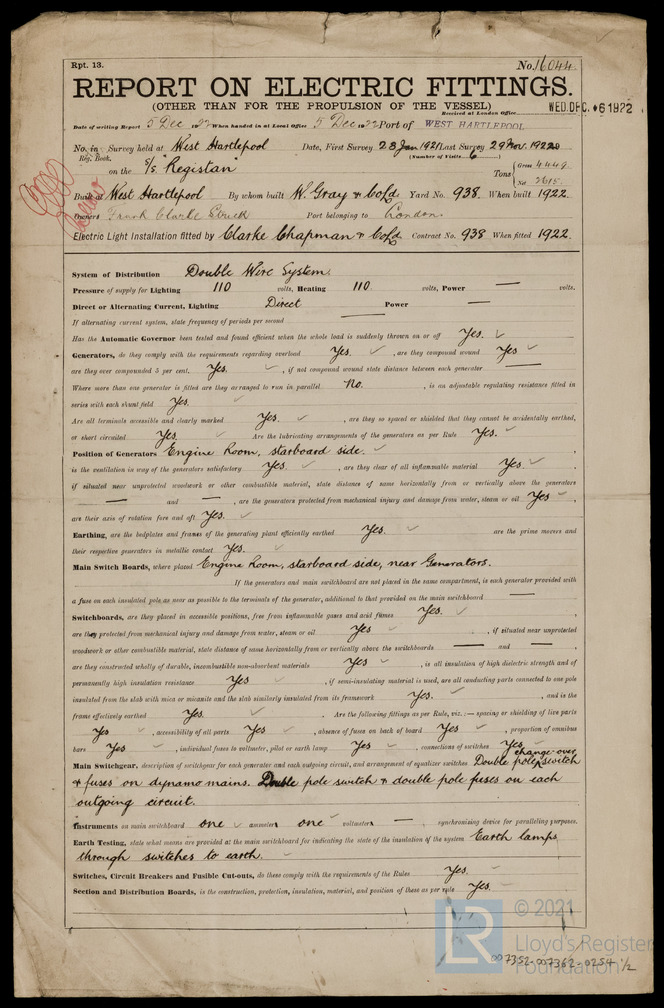 Rpt. 13.
No. 16044
REPORT ON ELECTRIC FITTINGS.
(OTHER THAN FOR THE PROPULSION OF THE VESSEL)
Received at London Office WED. DEC. 6 1922
Date of writing Report 5 Dec 1922 When handed in at Local Office 5 Dec 1922 Port of WEST HARTLEPOOL
No. in Survey held at West Hartlepool Date, First Survey 23 Jan 1921 Last Survey 29 Nov. 1922
Reg. Book. (Number of Visits 6)
on the S/S "Registan" Tons { Gross 4449
Net 2615
Built at West Hartlepool By whom built W. Gray & Co Ld Yard No. 938. When built 1922.
Owners Frank Clarke Strick Port belonging to London
Electric Light Installation fitted by Clarke Chapman & Co Ld Contract No. 938 When fitted 1922.
System of Distribution Double Wire System.
Pressure of supply for Lighting 110 volts, Heating 110 volts, Power — volts.
Direct or Alternating Current, Lighting Direct Power —
If alternating current system, state frequency of periods per second —
Has the Automatic Governor been tested and found efficient when the whole load is suddenly thrown on or off Yes.
Generators, do they comply with the requirements regarding overload Yes. , are they compound wound Yes
are they over compounded 5 per cent. Yes. , if not compound wound state distance between each generator —
Where more than one generator is fitted are they arranged to run in parallel No. , is an adjustable regulating resistance fitted in
series with each shunt field Yes.
Are all terminals accessible and clearly marked Yes. , are they so spaced or shielded that they cannot be accidentally earthed,
or short circuited Yes. Are the lubricating arrangements of the generators as per Rule Yes.
Position of Generators Engine Room, starboard side.
is the ventilation in way of the generators satisfactory Yes. , are they clear of all inflammable material Yes.
if situated near unprotected woodwork or other combustible material, state distance of same horizontally from or vertically above the generators
— and — , are the generators protected from mechanical injury and damage from water, steam or oil Yes
are their axis of rotation fore and aft Yes.
Earthing, are the bedplates and frames of the generating plant efficiently earthed Yes. are the prime movers and
their respective generators in metallic contact Yes.
Main Switch Boards, where placed Engine Room, starboard side, near Generators.
If the generators and main switchboard are not placed in the same compartment, is each generator provided with
a fuse on each insulated pole as near as possible to the terminals of the generator, additional to that provided on the main switchboard —
Switchboards, are they placed in accessible positions, free from inflammable gases and acid fumes Yes.
are they protected from mechanical injury and damage from water, steam or oil Yes , if situated near unprotected
woodwork or other combustible material, state distance of same horizontally from or vertically above the switchboards — and — ,
are they constructed wholly of durable, incombustible non-absorbent materials Yes , is all insulation of high dielectric strength and of
permanently high insulation resistance Yes , if semi-insulating material is used, are all conducting parts connected to one pole
insulated from the slab with mica or micanite and the slab similarly insulated from its framework Yes. , and is the
frame effectively earthed Yes. . Are the following fittings as per Rule, viz.:— spacing or shielding of live parts
Yes , accessibility of all parts Yes , absence of fuses on back of board Yes , proportion of omnibus
bars Yes , individual fuses to voltmeter, pilot or earth lamp Yes , connections of switches Yes
Main Switchgear, description of switchgear for each generator and each outgoing circuit, and arrangement of equalizer switches Double pole change-over switch
& fuses on dynamo mains. Double pole switch & double pole fuses on each
outgoing circuit.
Instruments on main switchboard one ammeters one voltmeters — synchronising device for paralleling purposes.
Earth Testing, state what means are provided at the main switchboard for indicating the state of the insulation of the system Earth lamps
through switches to earth.
Switches, Circuit Breakers and Fusible Cut-outs, do these comply with the requirements of the Rules Yes.
Section and Distribution Boards, is the construction, protection, insulation, material, and position of these as per rule Yes.
LR
© 2021
Lloyd's Register
Foundation
007352-007362-0254 1/2